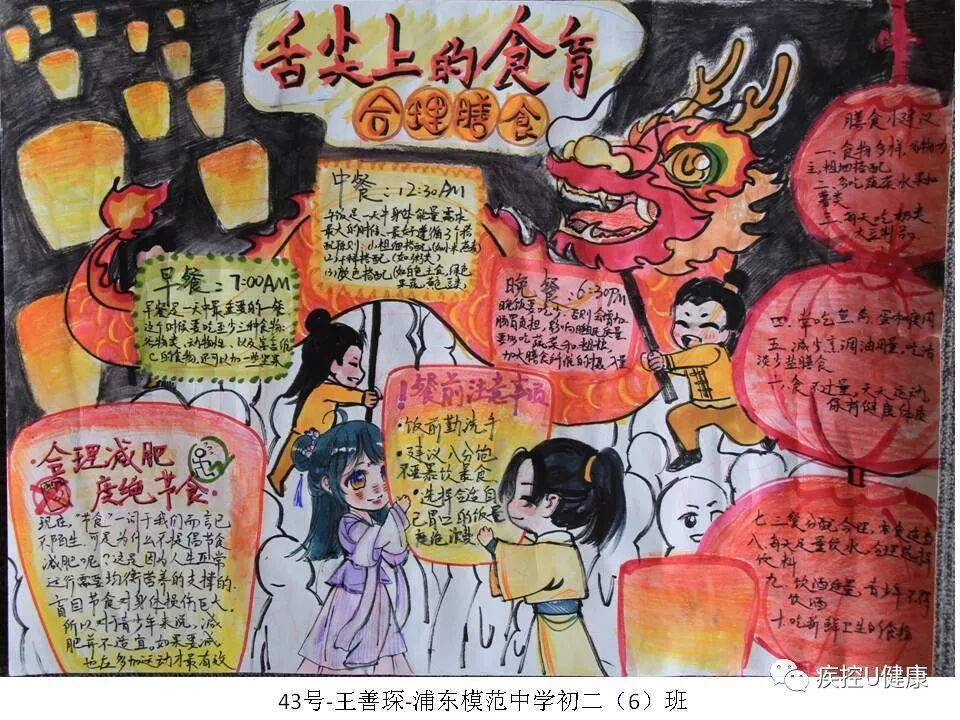 舌尖上的食育
合理膳食
中餐：12:30AM
午饭是一天中身体能量需求
最大的时候、最好遵循3个搭
配原则：
早餐：7:00AM
早餐是一天中最主要的一餐
这个时候要吃至少三种食物：
谷物类、动物性、以及
的食物,还可以加一些坚果
晚餐：6:30PM
晚饭要吃少、否则会增加
肠胃负担，影响睡眠质量
要吃蔬菜和粗粮，
！餐前注意事项
·饭前勤洗手
·建议八分饱
不要暴饮暴食
·选择合适自
己胃口的饭量
杜绝浪费
合理减肥
度绝节食.
现在，“节食”一词于我们而言已
不陌生，可是为什么不提倡节食
减肥呢？这是因为人生正常
运行需要均衡营养的支撑的.
盲目节食对身体损伤巨大.
所以对青少年来说，减
肥并不适宜。如果要减
也在多加运动才最有效
膳食小建议
一、食物多样，谷物为
主，粗细搭配
二、多吃蔬菜水果和
薯类
三、每天吃奶类
大豆制品
四、常吃鱼、禽、蛋和瘦肉
五、减少烹调油用量，吃清
淡少盐膳食
六、食不过量，天天运动，
保持健康体重
七、三餐分配合理，零食适当
八、每天足量饮水，合理选择
饮料
九、饮酒适量，青少年不得
饮酒
十、吃新鲜卫生的食物
疾控U健康
43号-王善琛-浦东模范中学初二（6）班